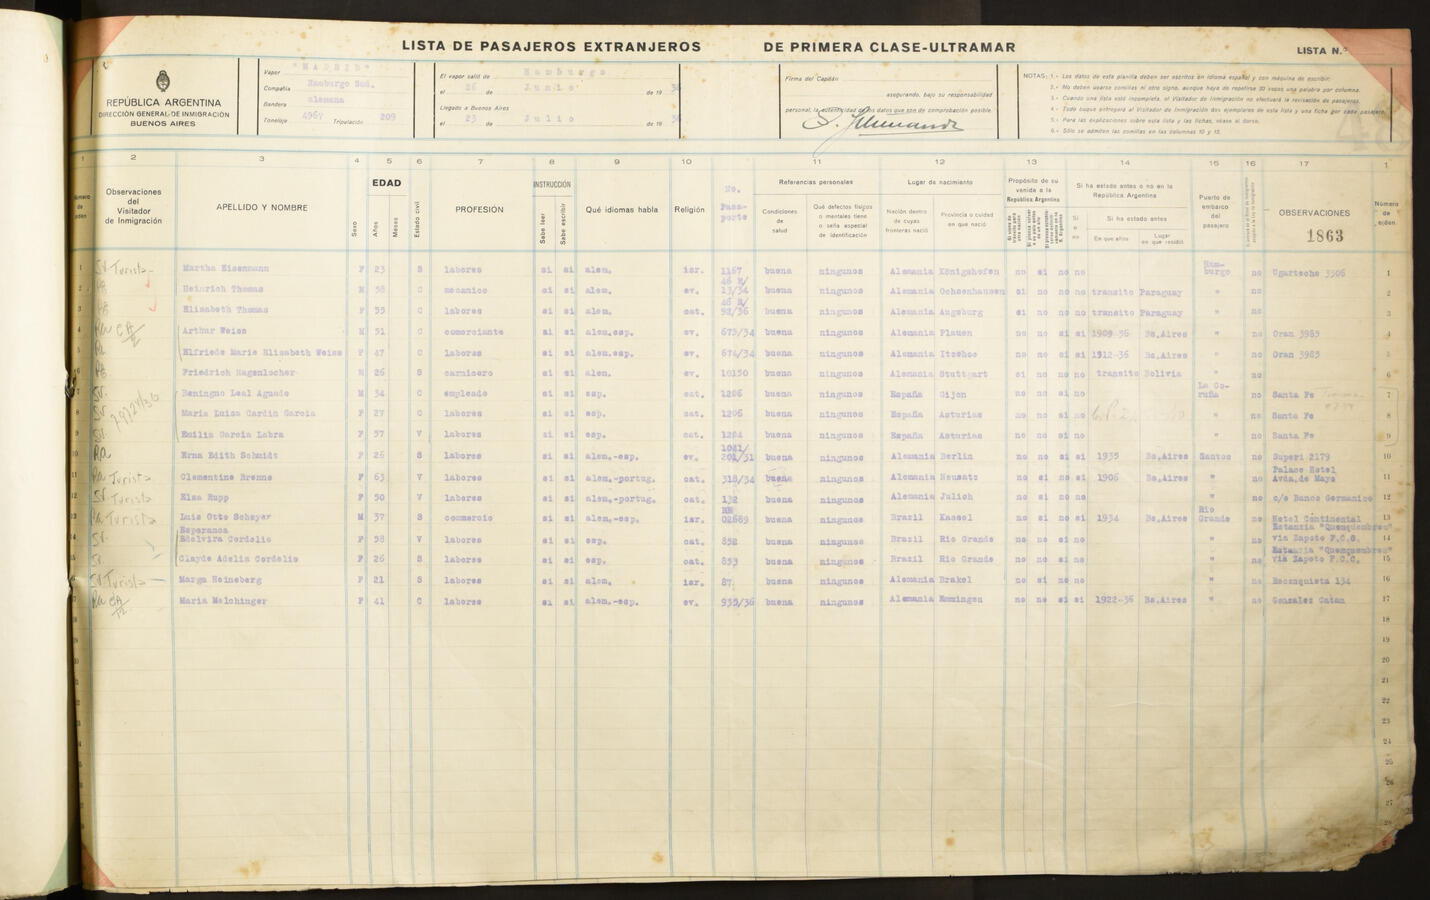 LISTA DE PASAJEROS EXTRANJEROS DE PRIMERA CLASE-ULTRAMAR
LISTA N.º
REPÚBLICA ARGENTINA
DIRECCIÓN GENERAL DE INMIGRACIÓN
BUENOS AIRES
Vapor "MADRID"
Compañía Hamburgo Sud.
Bandera alemana
Tonelaje 4967 Tripulación 209
El vapor salió de Hamburgo
el 26 de Junio de 19
Llegado a Buenos Aires
el 23 de Julio de 19
Firma del Capitán
asegurando, bajo su responsabilidad
personal, la autenticidad de los datos que son de comprobación posible.
NOTAS: 1.- Los datos de esta planilla deben ser escritos en idioma español y con máquina de escribir.
2.- No deben usarse comillas ni otro signo, aunque haya de repetirse 20 veces una palabra por columna.
3.- Cuando una lista esté incompleta, el Visitador de Inmigración no efectuará la revisación de pasajeros.
4.- Todo buque entregará al Visitador de Inmigración dos ejemplares de esta lista y una ficha por cada pasajero.
5.- Para las explicaciones sobre esta lista y las fichas, véase al dorso.
6.- Sólo se admiten las comillas en las columnas 10 y 15.
1 2 3 4 5 6 7 8 9 10 11 12 13 14 15 16 17 1
Número de orden
Observaciones del Visitador de Inmigración
APELLIDO Y NOMBRE
Sexo
EDAD
Años
Meses
Estado civil
PROFESIÓN
INSTRUCCIÓN
Sabe leer
Sabe escribir
Qué idiomas habla
Religión
No. Pasa-porte
Referencias personales
Condiciones de salud
Qué defectos físicos o mentales tiene o seña especial de identificación
Lugar de nacimiento
Nación dentro de cuyas fronteras nació
Provincia o cuidad en que nació
Propósito de su venida a la República Argentina
Si ha estado antes o no en la República Argentina
Si o no
Si ha estado antes
En que años
Lugar en que residió
Puerto de embarco del pasajero
OBSERVACIONES
1863
Número de orden
1 Sr. Turista Martha Eisenmann F 23 S labores si si alem. isr. 1167 buena ningunos Alemania Königshofen no si no no Ham-burgo no Ugarteche 3306 1
2 Heinrich Thomas M 58 C mecanico si si alem. ev. 46 H/ 13/34 buena ningunos Alemania Ochsenhausen si no no no transito Paraguay " no 2
3 Elisabeth Thomas F 55 C labores si si alem. cat. 46 H/ 92/36 buena ningunos Alemania Augsburg si no no no transito Paraguay " no 3
4 Arthur Weiss M 51 C comerciante si si alem.esp. ev. 673/34 buena ningunos Alemania Plauen no no si si 1909-36 Bs.Aires " no Oran 3985 4
Elfriede Marie Elisabeth Weiss F 47 C labores si si alem.esp. ev. 674/34 buena ningunos Alemania Itzehoe no no si si 1912-36 Bs.Aires " no Oran 3985
Friedrich Hagenlocher M 26 S carnicero si si alem. ev. 10150 buena ningunos Alemania Stuttgart si no no no transito Bolivia " no 6
Beningno Leal Aguado M 34 C empleado si si esp. cat. 1206 buena ningunos España Gijon no no si no La Co-ruña no Santa Fe 7
8 Maria Luisa Cardin Garcia F 27 C labores si si esp. cat. 1206 buena ningunos España Asturias no no si no " no Santa Fe 8
9 Emilia Garcia Labra F 57 V labores si si esp. cat. 1204 buena ningunos España Asturias no no si no " no Santa Fe 9
10 Erna Edith Schmidt F 26 S labores si si alem.-esp. ev. 1041/ 201/31 buena ningunos Alemania Berlin no no si si 1935 Bs.Aires Santos no Superi 2179 10
11 Turista Clementine Brenne F 63 V labores si si alem.-portug. cat. 318/34 buena ningunos Alemania Neusatz no si no si 1906 Bs.Aires " no Palace Hotel Avda.de Mayo 11
12 Sr. Turista Elsa Rupp F 50 V labores si si alem.-portug. cat. 132 buena ningunos Alemania Julich no si no no " no c/o Banco Germanico 12
13 Turista Luis Otto Scheyer M 37 S comercio si si alem.-esp. isr. 02689 buena ningunos Brazil Kassel no si no si 1934 Bs.Aires Rio Grande no Hotel Continental 13
14 Esperanca Edelvira Cordelio F 58 V labores si si esp. cat. 852 buena ningunos Brazil Rio Grande no no si no " no via Zapeto F.C.S. 14
15 Clayde Adelia Cordelio F 26 S labores si si esp. cat. 853 buena ningunos Brazil Rio Grande no no si no " no via Zapeto F.C.C. 15
Sr. Turista Marga Heineberg F 21 S labores si si alem. isr. 87 buena ningunos Alemania Brakel no si no no " no Reconquista 134 16
Maria Melchinger F 41 C labores si si alem.-esp. ev. 935/36 buena ningunos Alemania Emmingen no no si si 1922-36 Bs.Aires " no Gonzalez Catan 17
18
19
20
21
22
23
24
25
26
27
28